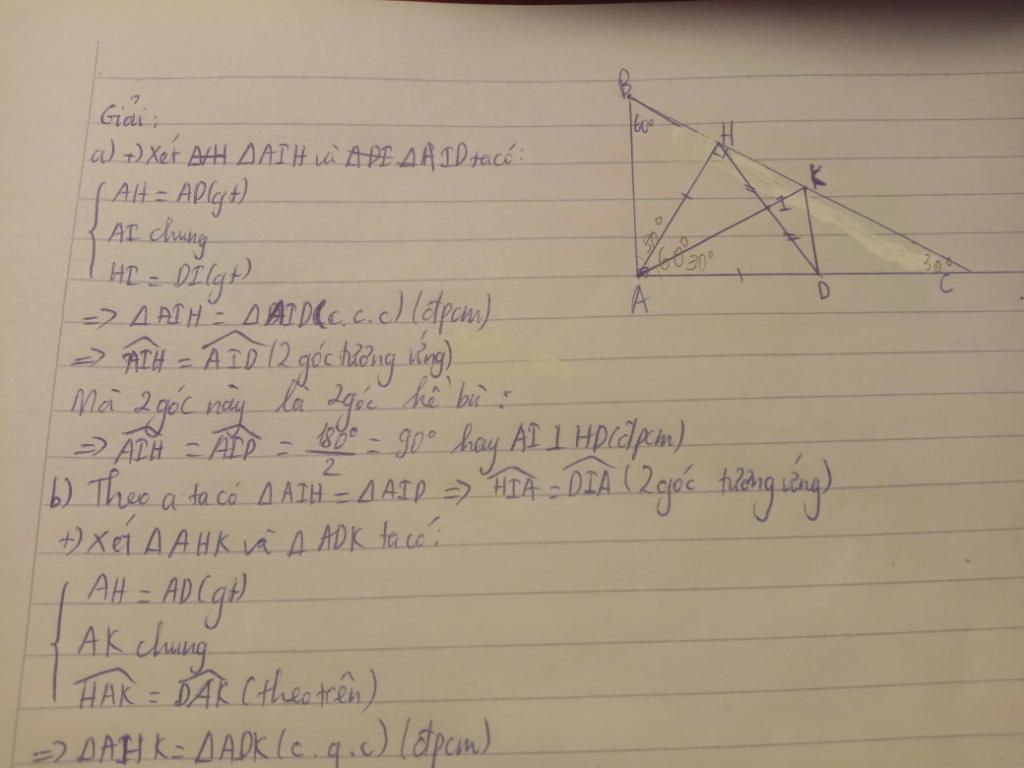 Giải:
a) +) Xét ΔAIH và ΔAID ta có:
AH = AD (gt)
AI chung
HI = DI (gt)
=> ΔAIH = ΔAID (c.c.c) (đpcm)
=> AIH = AID (2 góc tương ứng)
Mà 2 góc này là 2 góc kề bù:
=> AIH = AID = 180°/2 = 90° hay AI ⊥ HD (đpcm)
b) Theo a ta có ΔAIH = ΔAID => HIA = DIA (2 góc tương ứng)
+) Xét ΔAHK và ΔADK ta có:
AH = AD (gt)
AK chung
HAK = DAK (theo trên)
=> ΔAHK = ΔADK (c.g.c) (đpcm)
B
60°
H
K
I
30°
60°
30°
30°
A
D
C